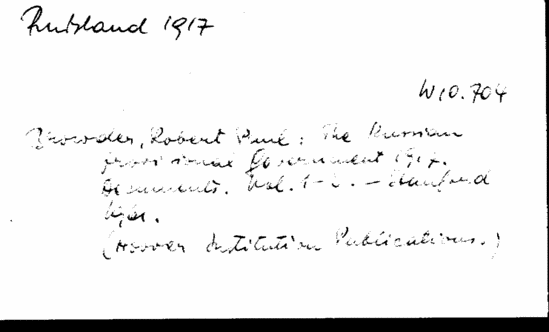 Rußland 1917
W10.704
Browder, Robert Paul: The Russian
provisional Government 1917.
Documents. Vol. 1- . - Stanford
1961.
(Hoover Institution Publications.)